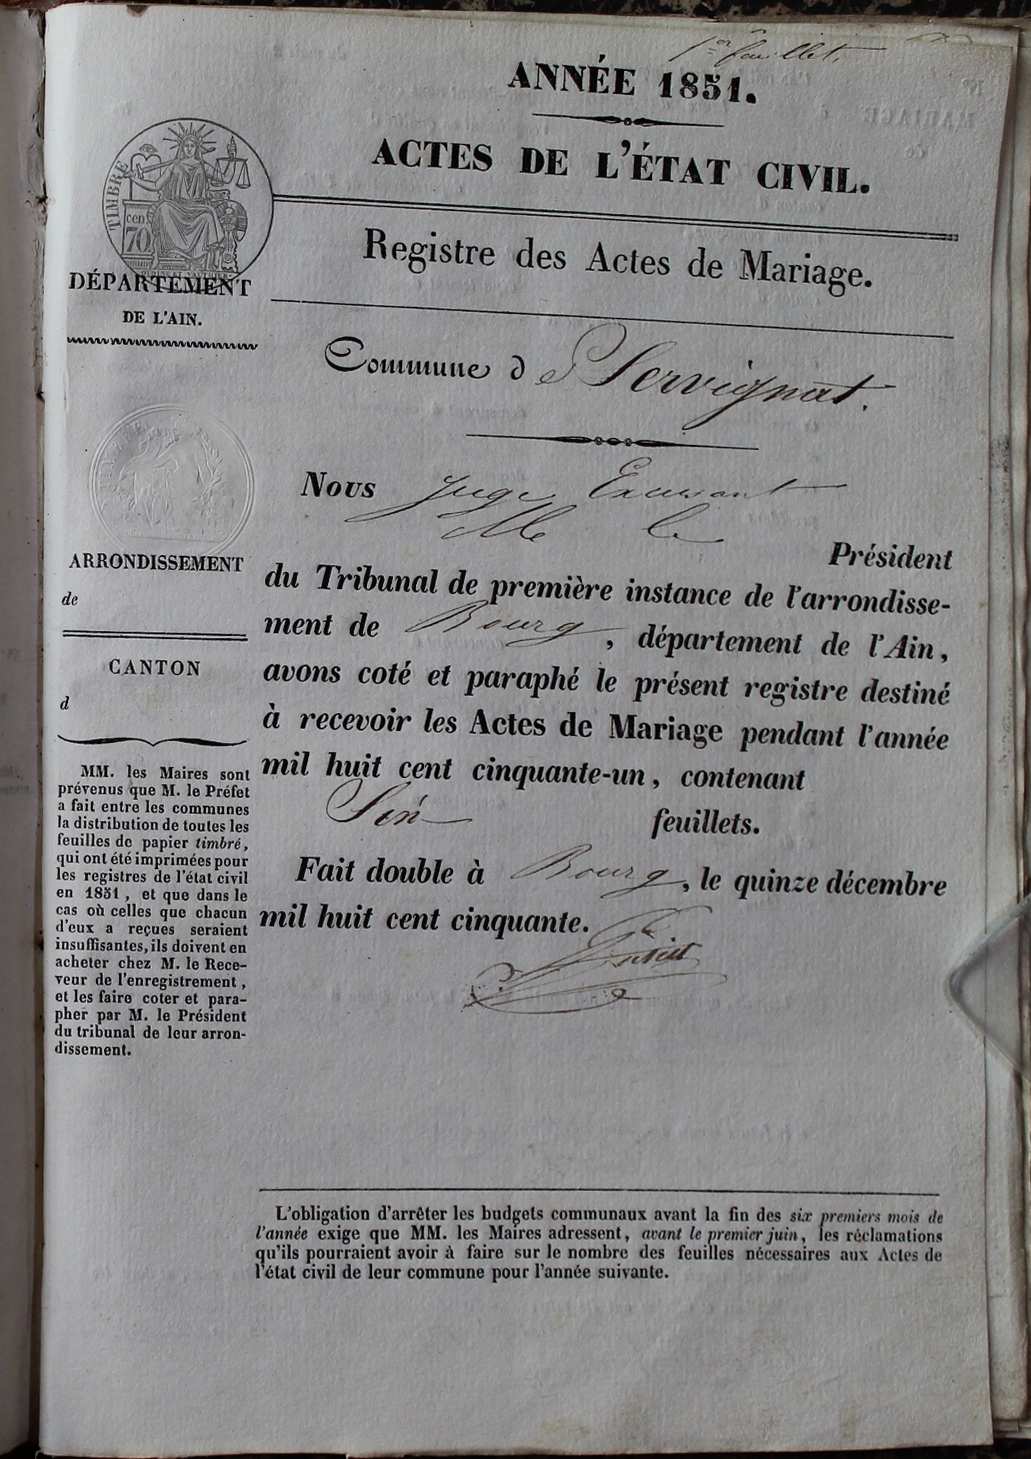 1er feuillet.
ANNÉE 1851.
ACTES DE L'ÉTAT CIVIL.
Registre des Actes de Mariage.
TIMBRE
cen
70
DÉPARTEMENT
DE L'AIN.
Commune de Servignat.
Nous Juge
Mr le
Président
du Tribunal de première instance de l'arrondisse-
ment de Bourg, département de l'Ain,
avons coté et paraphé le présent registre destiné
à recevoir les Actes de Mariage pendant l'année
mil huit cent cinquante-un, contenant
feuillets.
Fait double à Bourg, le quinze décembre
mil huit cent cinquante.
ARRONDISSEMENT
de
CANTON
d
MM. les Maires sont
prévenus que M. le Préfet
a fait entre les communes
la distribution de toutes les
feuilles de papier timbré,
qui ont été imprimées pour
les registres de l'état civil
en 1851, et que dans le
cas où celles que chacun
d'eux a reçues seraient
insuffisantes, ils doivent en
acheter chez M. le Rece-
veur de l'enregistrement,
et les faire coter et para-
pher par M. le Président
du tribunal de leur arron-
dissement.
L'obligation d'arrêter les budgets communaux avant la fin des six premiers mois de
l'année exige que MM. les Maires adressent, avant le premier juin, les réclamations
qu'ils pourraient avoir à faire sur le nombre des feuilles nécessaires aux Actes de
l'état civil de leur commune pour l'année suivante.